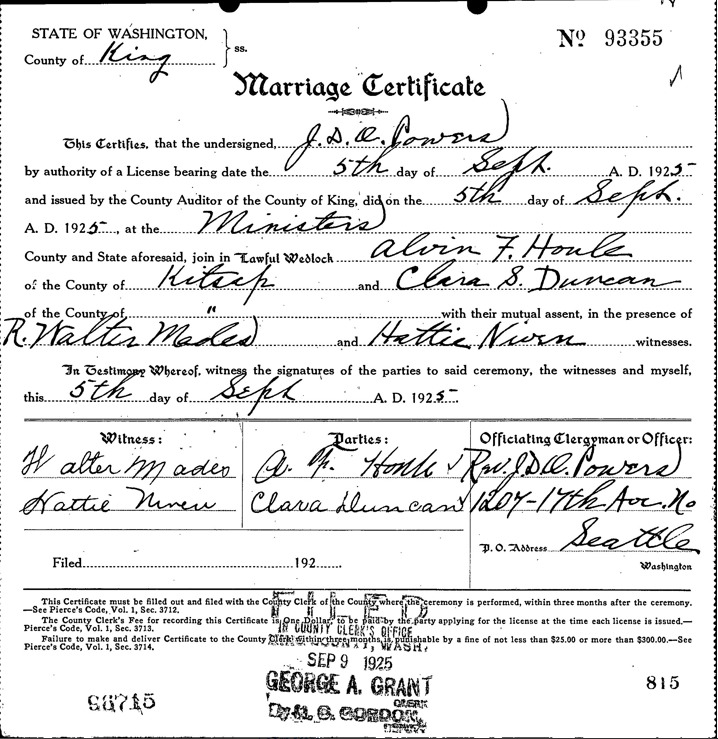 STATE OF WASHINGTON,
County of King ss.
No 93355
Marriage Certificate
This Certifies, that the undersigned, J. D. O. Powers
by authority of a License bearing date the 5th day of Sept. A. D. 1925
and issued by the County Auditor of the County of King, did on the 5th day of Sept.
A. D. 1925, at the Ministers
County and State aforesaid, join in Lawful Wedlock Alvin F. Houle
of the County of Kitsap and Clara S. Duncan
of the County of " with their mutual assent, in the presence of
R. Walter Mades and Hattie Niven witnesses.
In Testimony Whereof, witness the signatures of the parties to said ceremony, the witnesses and myself,
this 5th day of Sept A. D. 1925
Witness:
Walter Mades
Hattie Niven
Parties:
A. F. Houle
Clara Duncan
Officiating Clergyman or Officer:
Rev. J. D. O. Powers
1207-17th Ave. No
P. O. Address Seattle
Washington
Filed 192
This Certificate must be filled out and filed with the County Clerk of the County where the ceremony is performed, within three months after the ceremony.
—See Pierce's Code, Vol. 1, Sec. 3712.
The County Clerk's Fee for recording this Certificate is One Dollar, to be paid by the party applying for the license at the time each license is issued.—
Pierce's Code, Vol. 1, Sec. 3713.
Failure to make and deliver Certificate to the County Clerk within three months is punishable by a fine of not less than $25.00 or more than $300.00.—See
Pierce's Code, Vol. 1, Sec. 3714.
FILED
IN COUNTY CLERK'S OFFICE
COUNTY, WASH.
SEP 9 1925
GEORGE A. GRANT
CLERK
By H. B. GORDON,
DEPUTY
815